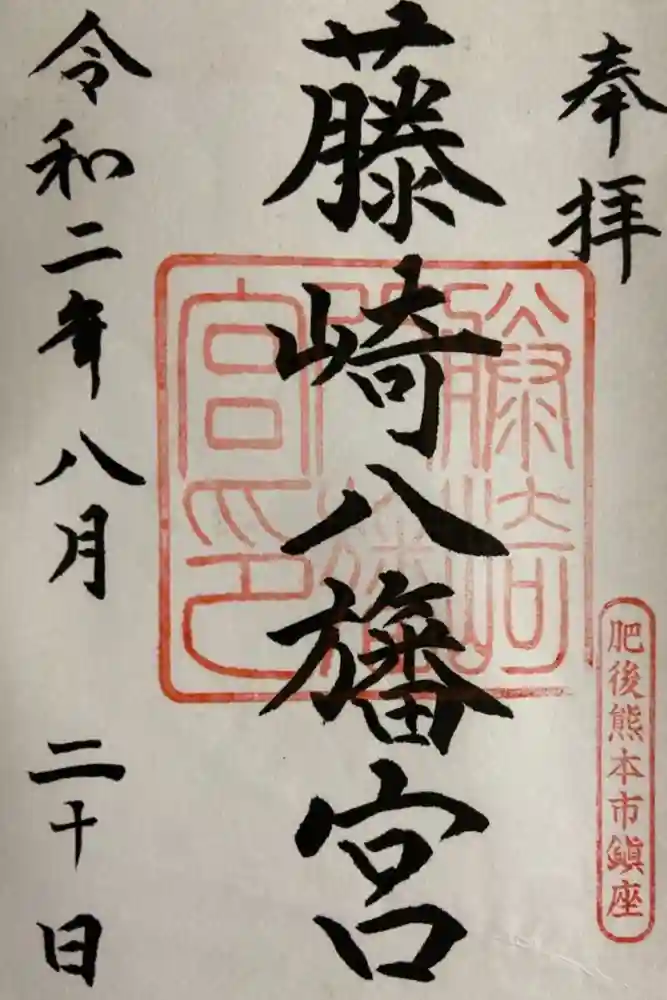 奉拝
藤崎八旛宮
藤崎八旛宮印
肥後熊本市鎮座
令和二年八月二十日